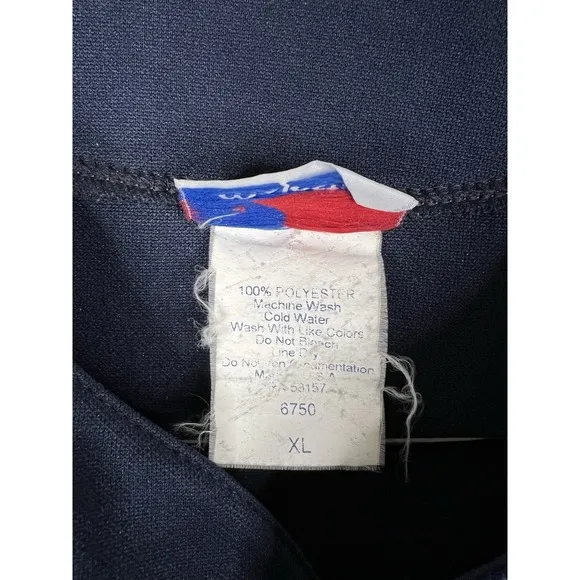 100% POLYESTER
Machine Wash
Cold Water
Wash With Like Colors
Do Not Bleach
Line Dry
Do Not Iron Ornamentation
Made U.S.A.
53157
6750
XL